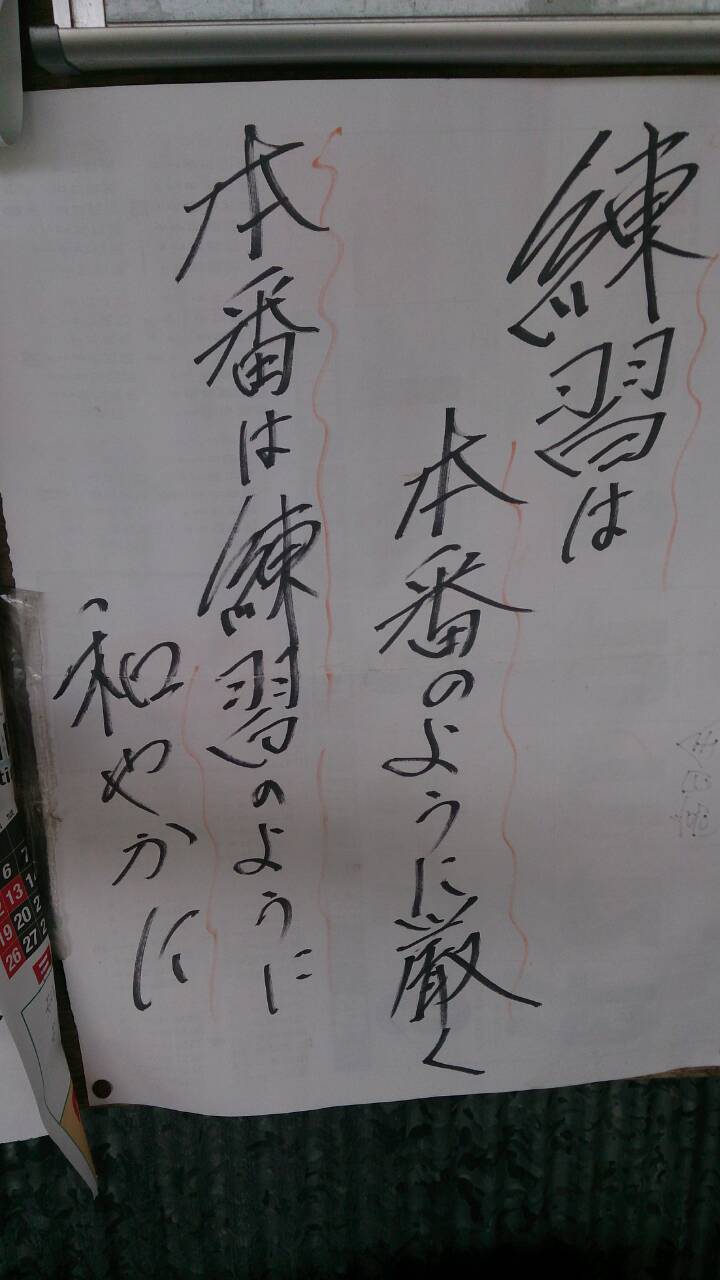 練習は
本番のように厳く
本番は練習のように
和やかに
6 7
13 14
19 20 2
26 27 2